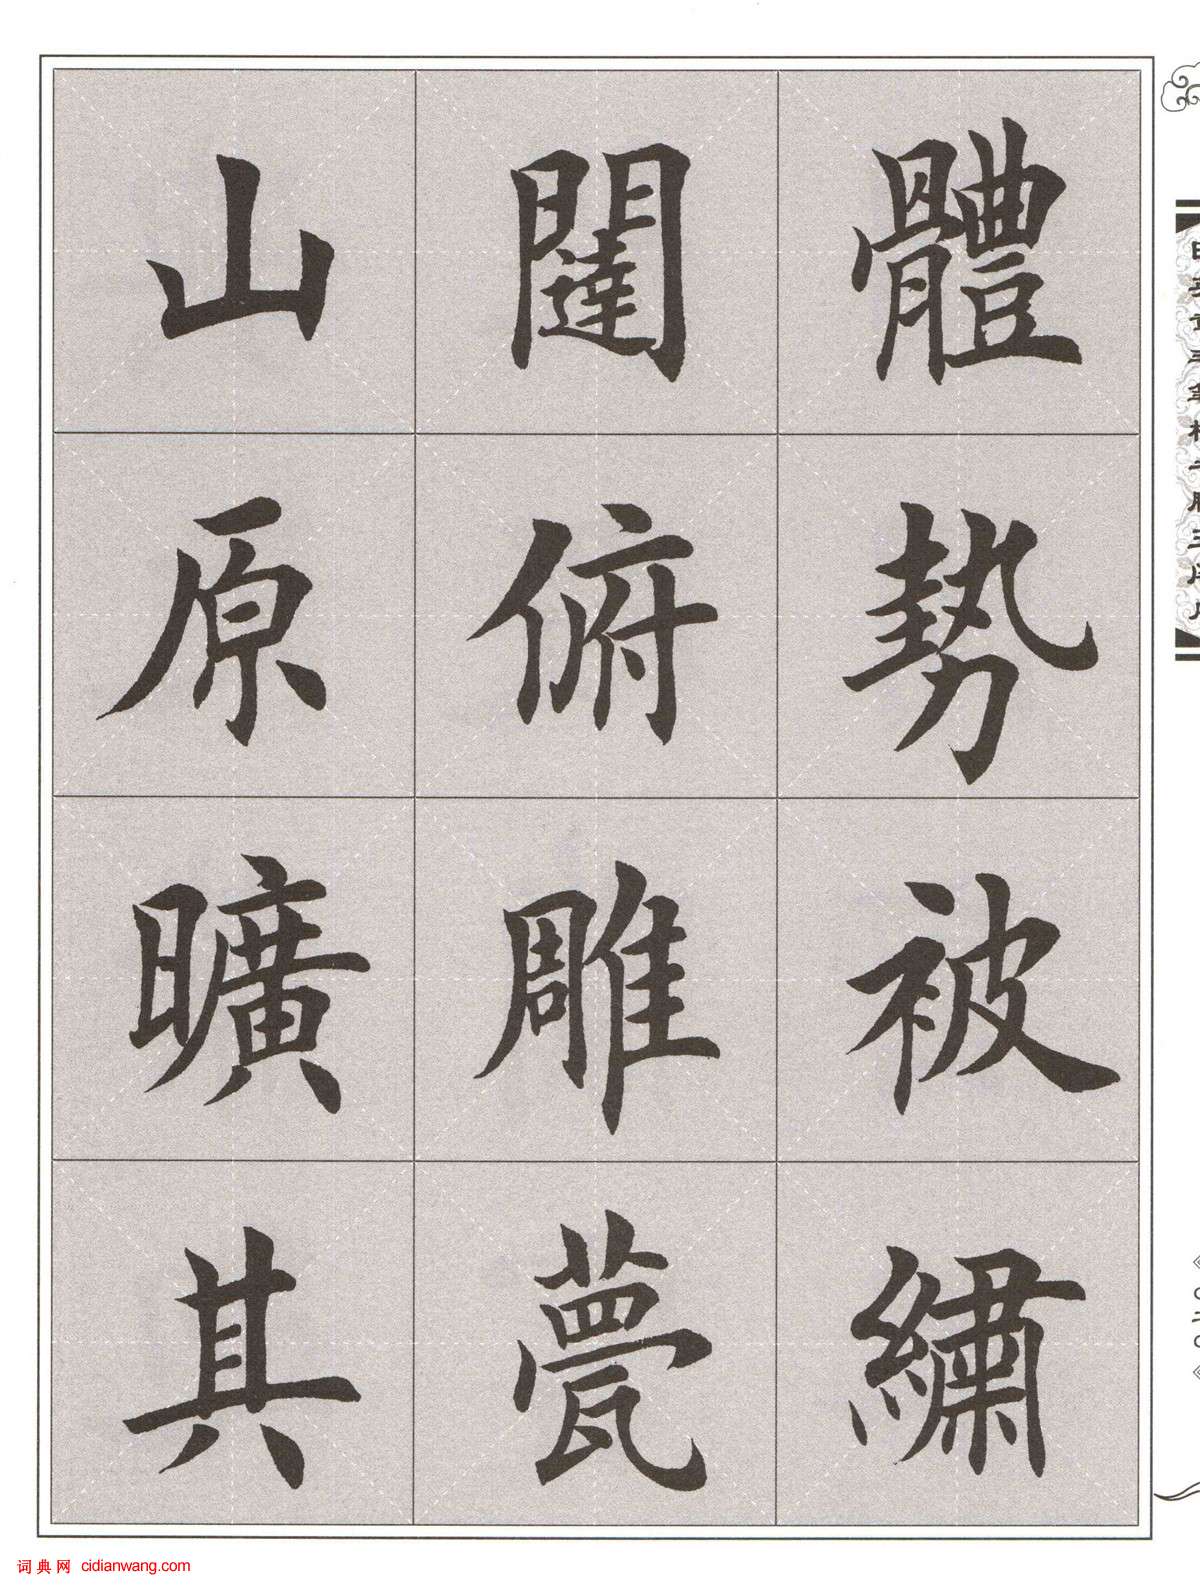 體勢被繡
闥俯雕甍
山原曠其
词典网 cidianwang.com